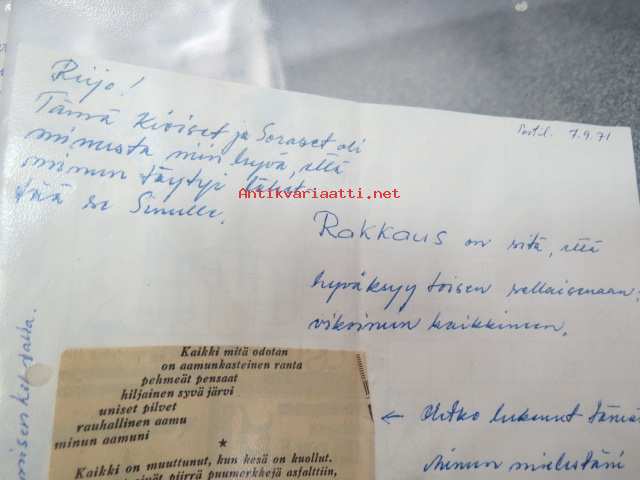 Reijo!
Tämä Kiviset ja Soraset oli
minusta niin hyvä, että
minun täytyi
tää se Sinulle.
7.9.71
Antikvariaatti.net
Rakkaus on sitä, että
hyväksyy toisen sellaisenaan
vikoinun kaikkinun.
Kaikki mitä odotan
on aamunkasteinen ranta
pehmeät pensaat
hiljainen syvä järvi
uniset pilvet
rauhallinen aamu
minun aamuni
★
Kaikki on muuttunut, kun kesä on kuollut.
piirrä puumerkkejä asfalttiin,
← Oletko lukenut tämän
Minun mielestäni